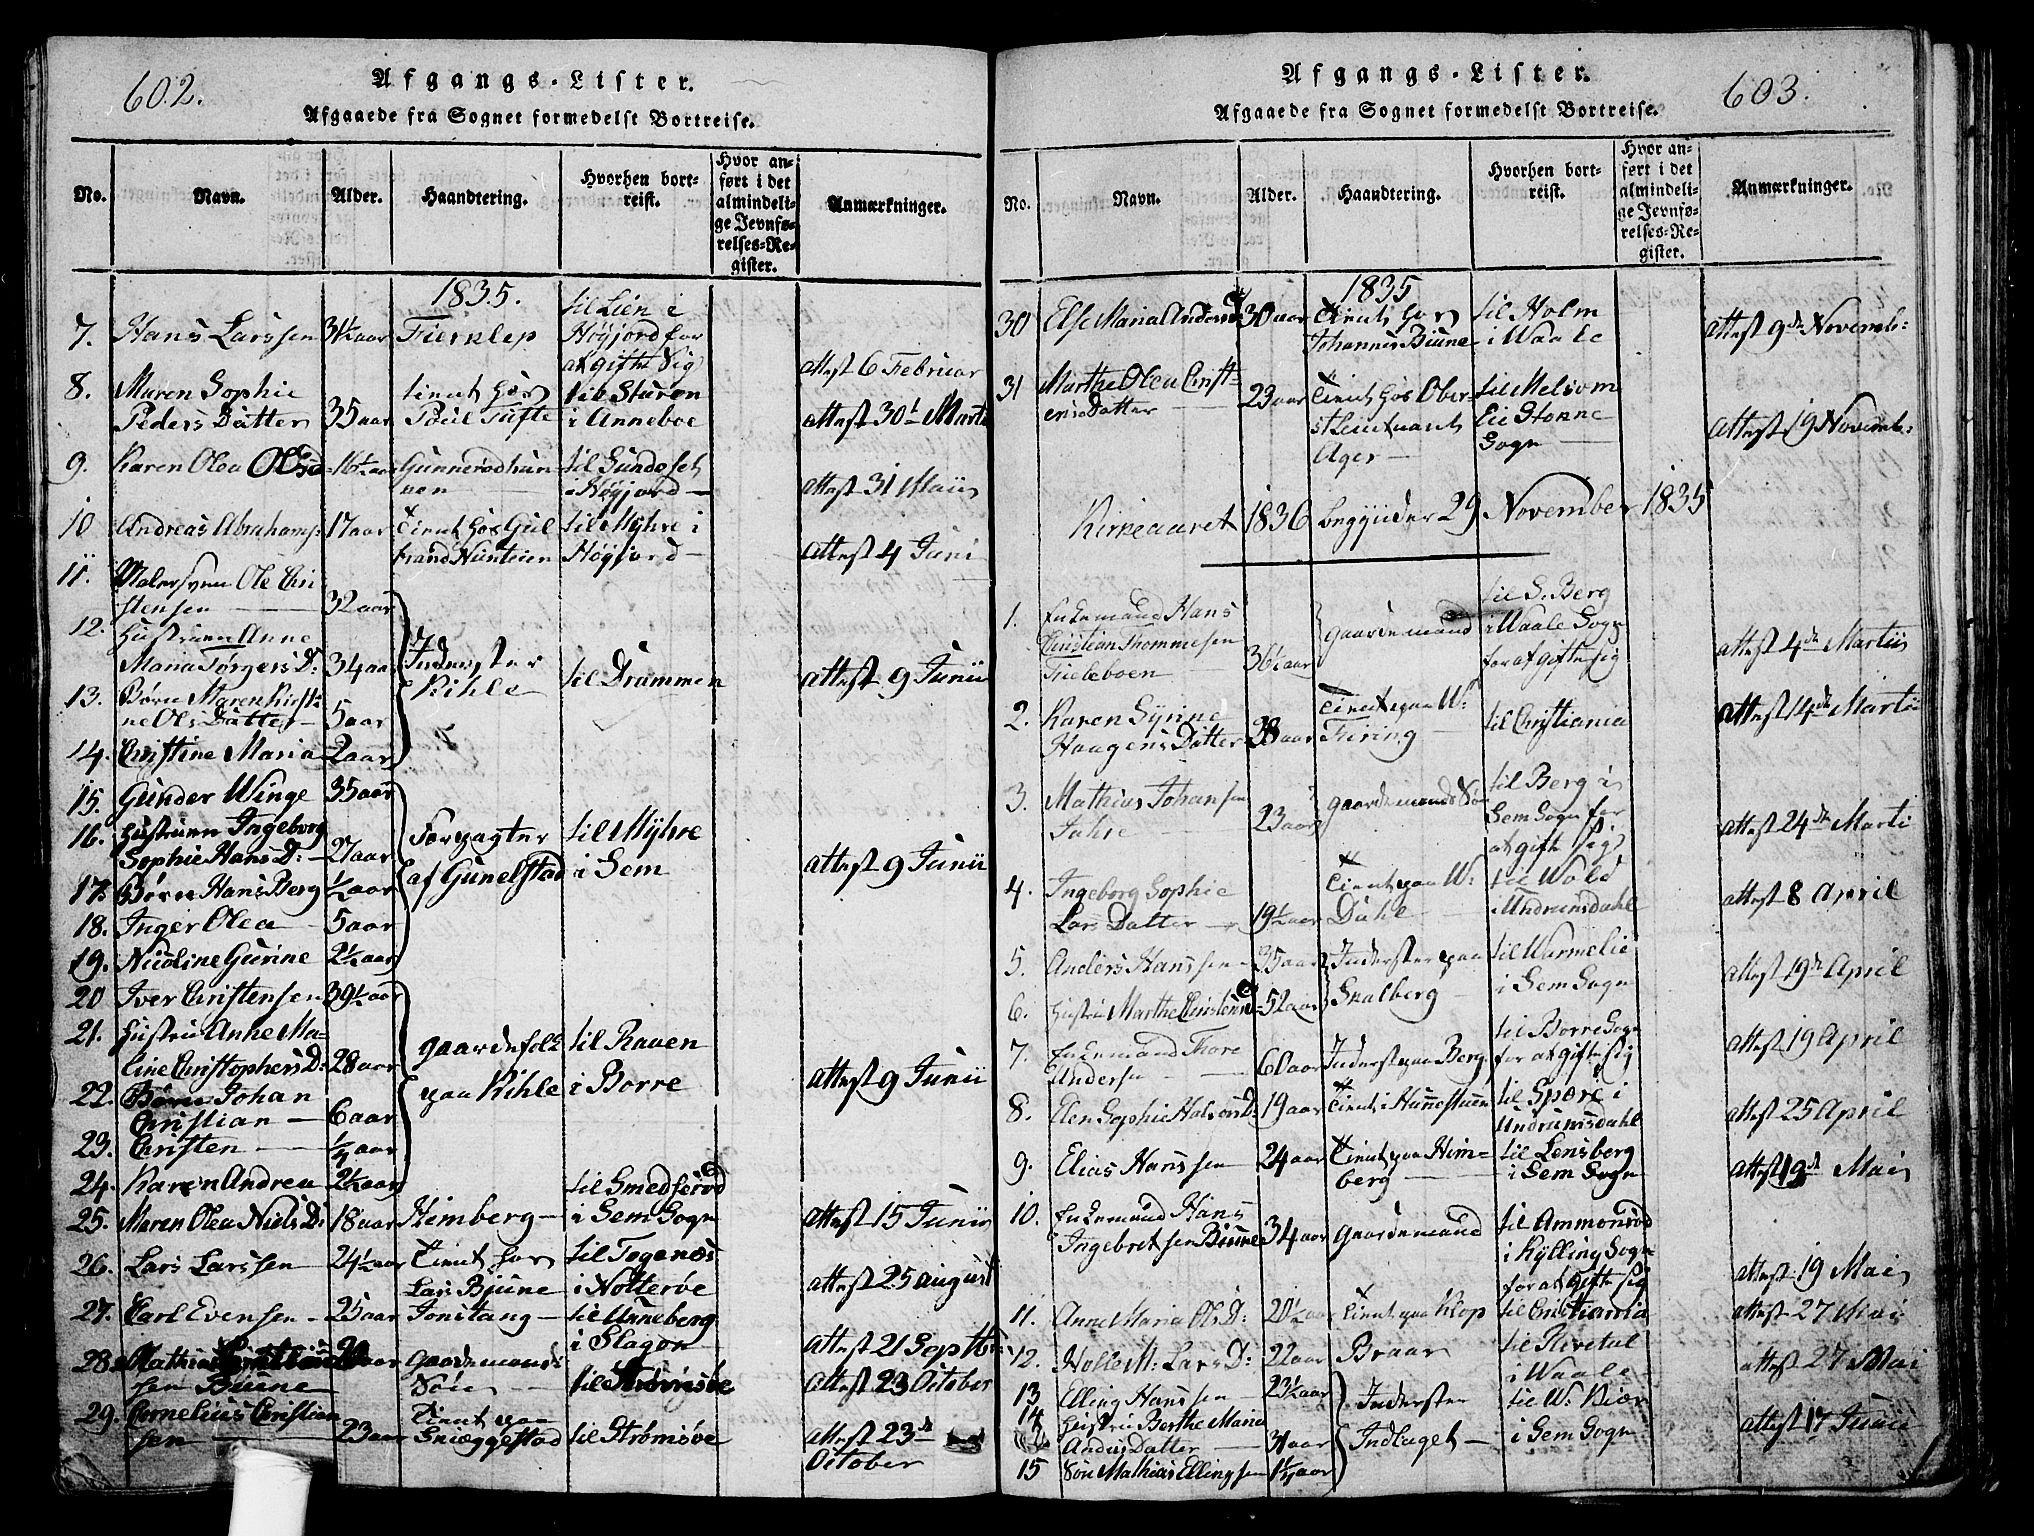 602.
Afgangs-Lister.
Afgaaede fra Sognet formedelst Bortreise.
No. Navn. Alder. Haandtering. Hvorhen bortreist. Hvor anført i det almindelige Jevnførelses-Register. Anmærkninger.
1835.
7. Hans Larssen 31½ aar Fierklep til Lien i Høyjord for at gifte Sig attest 6 Februar
8. Maren Sophie Peders Datter 35 aar tient hos Poul Tufte til Sturen i Anneboe attest 30te Marti
9. Karen Olea Olsd 16½ aar Gunnerød til Sundset i Høyjord attest 31 Maii
10 Andreas Abrahams: 17 aar tient hos Gulbrand til Myhre i Høyjord attest 4 Juni
11. Ole Christensen 32 aar
12. Hustruen Anne Maria Torgers D: 34 aar Inderster Kihle til Drammen attest 9 Junii
13. Børn Maren Kirstine Ols Datter 5 aar
14. Christine Maria 2 aar
15. Gunder Winge 35 aar
16. Hustruen Ingeborg Sophie Hans D: 27 aar Forpagter af Gunelstad til Myhre i Sem attest 9 Junii
17. Børn Hans Berg ½ aar
18. Inger Olea 5 aar
19. Nicoline Gurine 2½ aar
20 Iver Christensen 39½ aar
21. Hustru Anne Maline Christophers D: 28 aar gaardefolk paa Kihle til Raven i Borre attest 9 Junii
22. Børn Johan Christian 6 aar
23. Christen ¼ aar
24. Karen Andrea 2½ aar
25. Maren Olea Niels D: 18 aar Himberg til Smedserød i Sem Sogn attest 15 Junii
26. Lars Larssen 24½ aar Tient hos Lars Bjune til Togenæs i Notterøe attest 25 august
27. Carl Evensen 25 aar Jonstang til Unneberg i Slagen attest 21 Septbr:
28. Mathias sen Biune aar Gaardemands Søn til Strømsøe attest 23 October
29. Cornelius Christiansen 23 aar tient paa Sniæggestad til Strømsøe attest 23de October
603.
Afgangs-Lister.
Afgaaede fra Sognet formedelst Bortreise.
No. Navn. Alder. Haandtering. Hvorhen bortreist. Hvor anført i det almindelige Jevnførelses-Register. Anmærkninger.
1835
30 Else Maria Andersd 30 aar tient hos Johannes Biune til Holm i Waale attest 9de Novemb:
31 Marthe Olea Christens Datter 23 aar Tient hos Oberstlieutnant Ager til Melsom Sogn attest 19 Novemb:
Kirkeaaret 1836 begynder 29 November 1835
1. Enkemand Hans Christian Thommesen Fieleboen 36½ aar gaardemand til S. Berg i Waale Sogn for at gifte sig attest 4de Martii
2. Karen Syrine Haagens Datter 38 aar Tient paa W: Fering til Christiania attest 14de Marti
3. Mathias Johansen Jahre 23 aar gaardemands Søn til Berg i Sem Sogn for at gifte sig attest 24de Marti
4. Ingeborg Sophie Lars Datter 19½ aar Tient paa W: Dahl til Wold i Undrumsdahl attest 8 April
5. Anders Hanssen 35 aar Inderster paa Skalberg til Warmelie i Sem Sogn attest 19de April
6. Hustru Marthe Christensd 52 aar
7. Enkemand Thore Andersen 60 aar Inderst paa Berg til Borre Sogn for at gifte sig attest 19 April
8. Elen Sophie Halvors D: 19 aar Tient i Hunnestuen til Spære i Undrumsdahl attest 25 April
9. Elias Hanssen 24 aar Tient paa Himberg til Lensberg i Sem Sogn attest 19de Mai
10. Enkemand Hans Ingebretsen Biune 34 aar gaardemand til Ammonsrød i Kylling Sogn for at gifte sig attest 19 Mai
11. Anne Maria Ols D: 20½ aar tient paa Klop til Christiania attest 27 Mai
12. M: Lars D: 22 aar Braar til Revetal i Waale attest 27 Mai
13 Elling Hanssen 23½ aar Inderster Indlaget til W. Biør i Sem Sogn attest 17 Junii
14 Hustru Berthe Maria Anders Datter 31 aar
15 Søn Mathias Ellingsen 1¼ aar